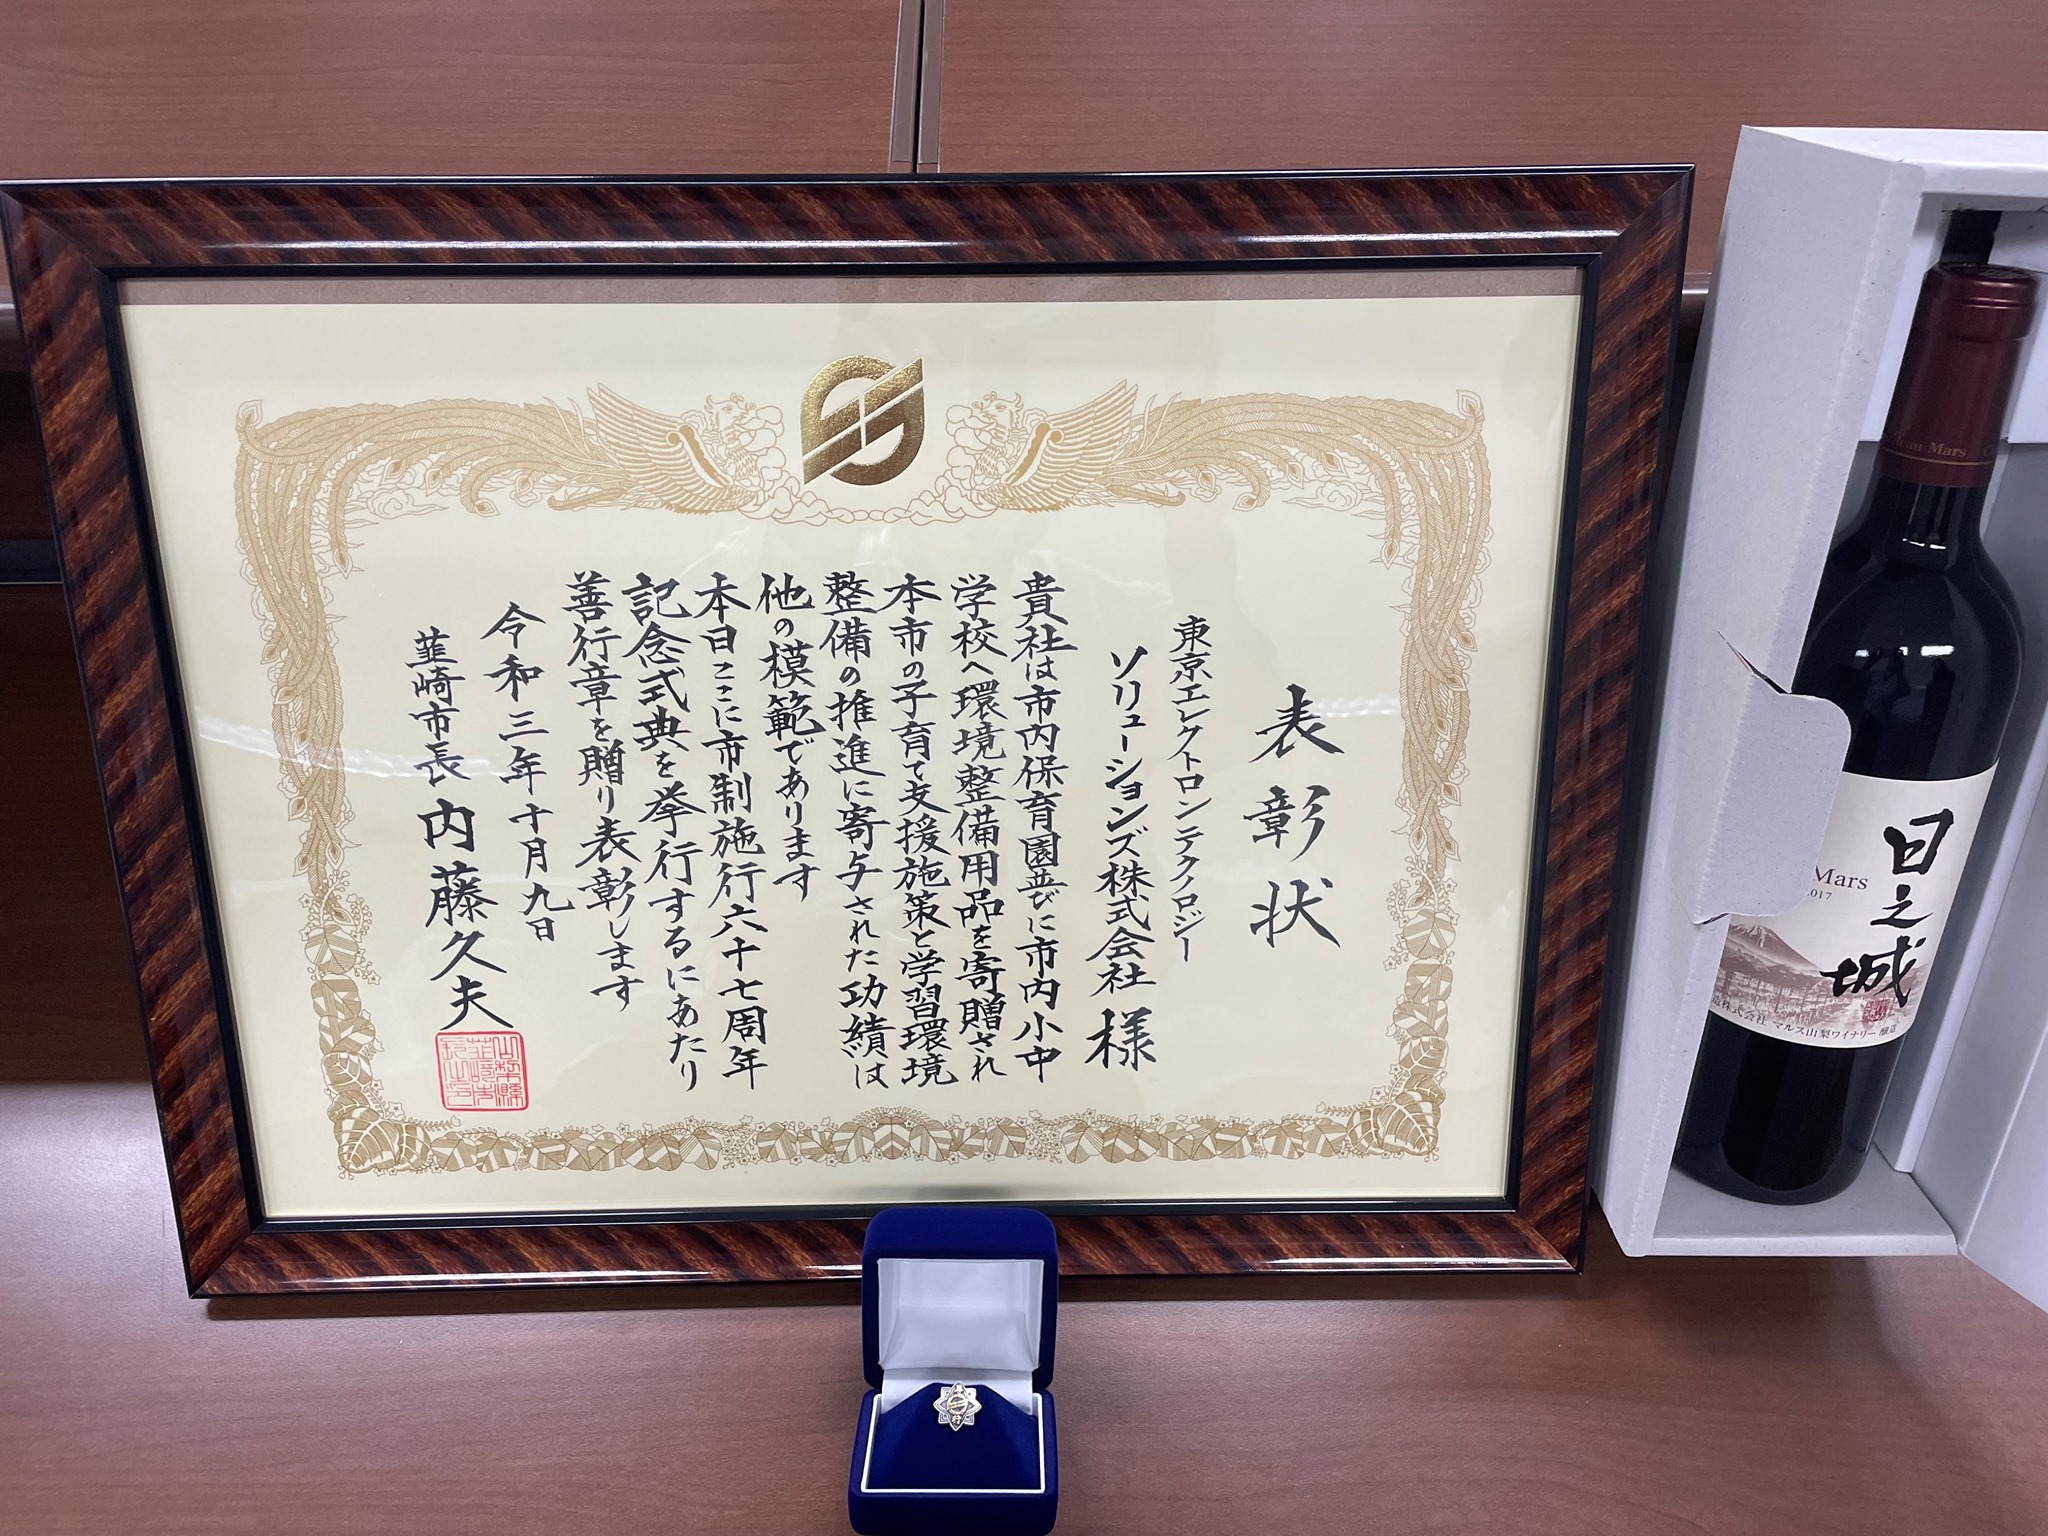 表彰状
東京エレクトロンテクノロジー
ソリューションズ株式会社 様
貴社は市内保育園並びに市内小中
学校へ環境整備用品を寄贈され
本市の子育て支援施策と学習環境
整備の推進に寄与された功績は
他の模範であります
本日ここに市制施行六十七周年
記念式典を挙行するにあたり
善行章を贈り表彰します
令和三年十月九日
韮崎市長 内藤久夫
山梨縣
韮崎市
長之印
Mars
日之城
Mars
造株式会社 マルス山梨ワイナリー醸造
行